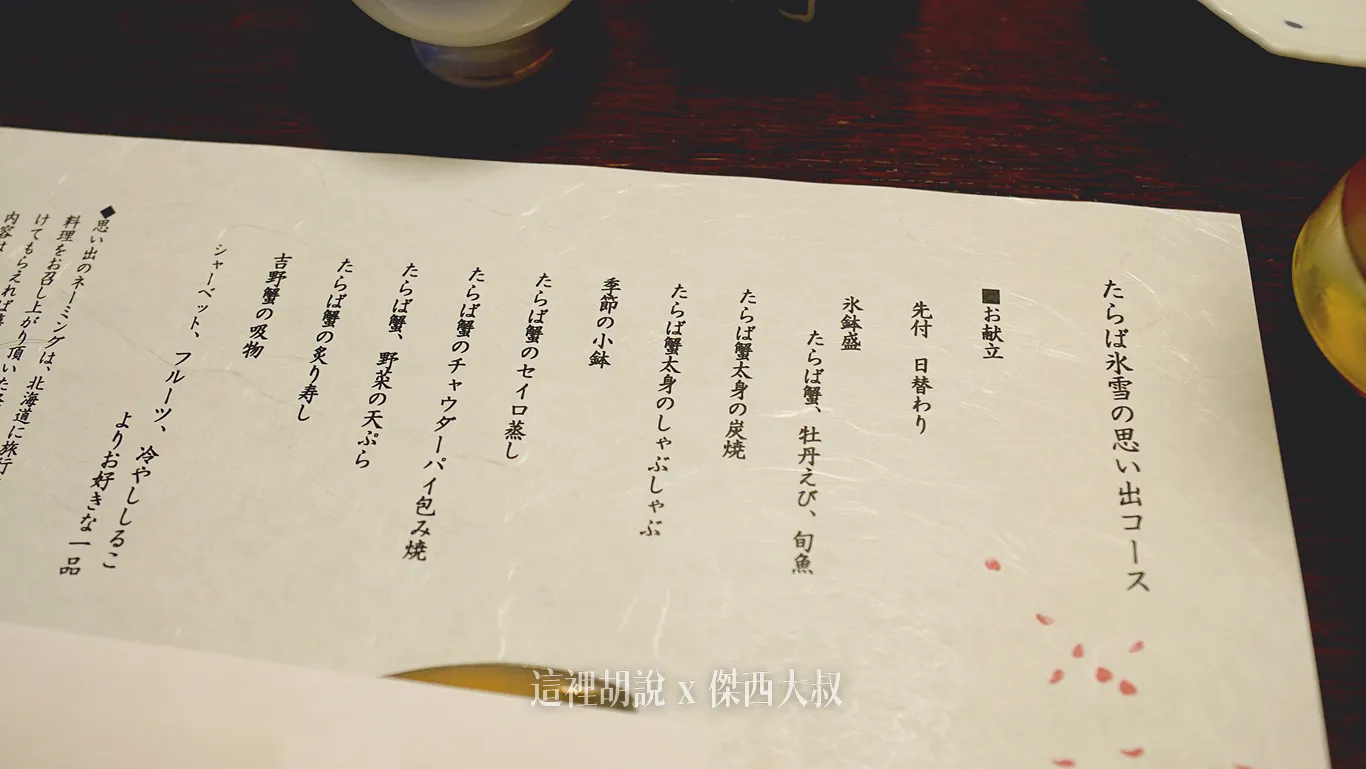 たらば氷雪の思い出コース
■お献立
先付　日替わり
氷鉢盛
たらば蟹、牡丹えび、旬魚
たらば蟹太身の炭焼
たらば蟹太身のしゃぶしゃぶ
季節の小鉢
たらば蟹のセイロ蒸し
たらば蟹のチャウダーパイ包み焼
たらば蟹、野菜の天ぷら
たらば蟹の炙り寿し
吉野蟹の吸物
シャーベット、フルーツ、冷やししるこ
よりお好きな一品
◆思い出のネーミングは、北海道に旅行
料理をお召し上がり頂いた
けてもらえれば
内容は
這裡胡說 x 傑西大叔